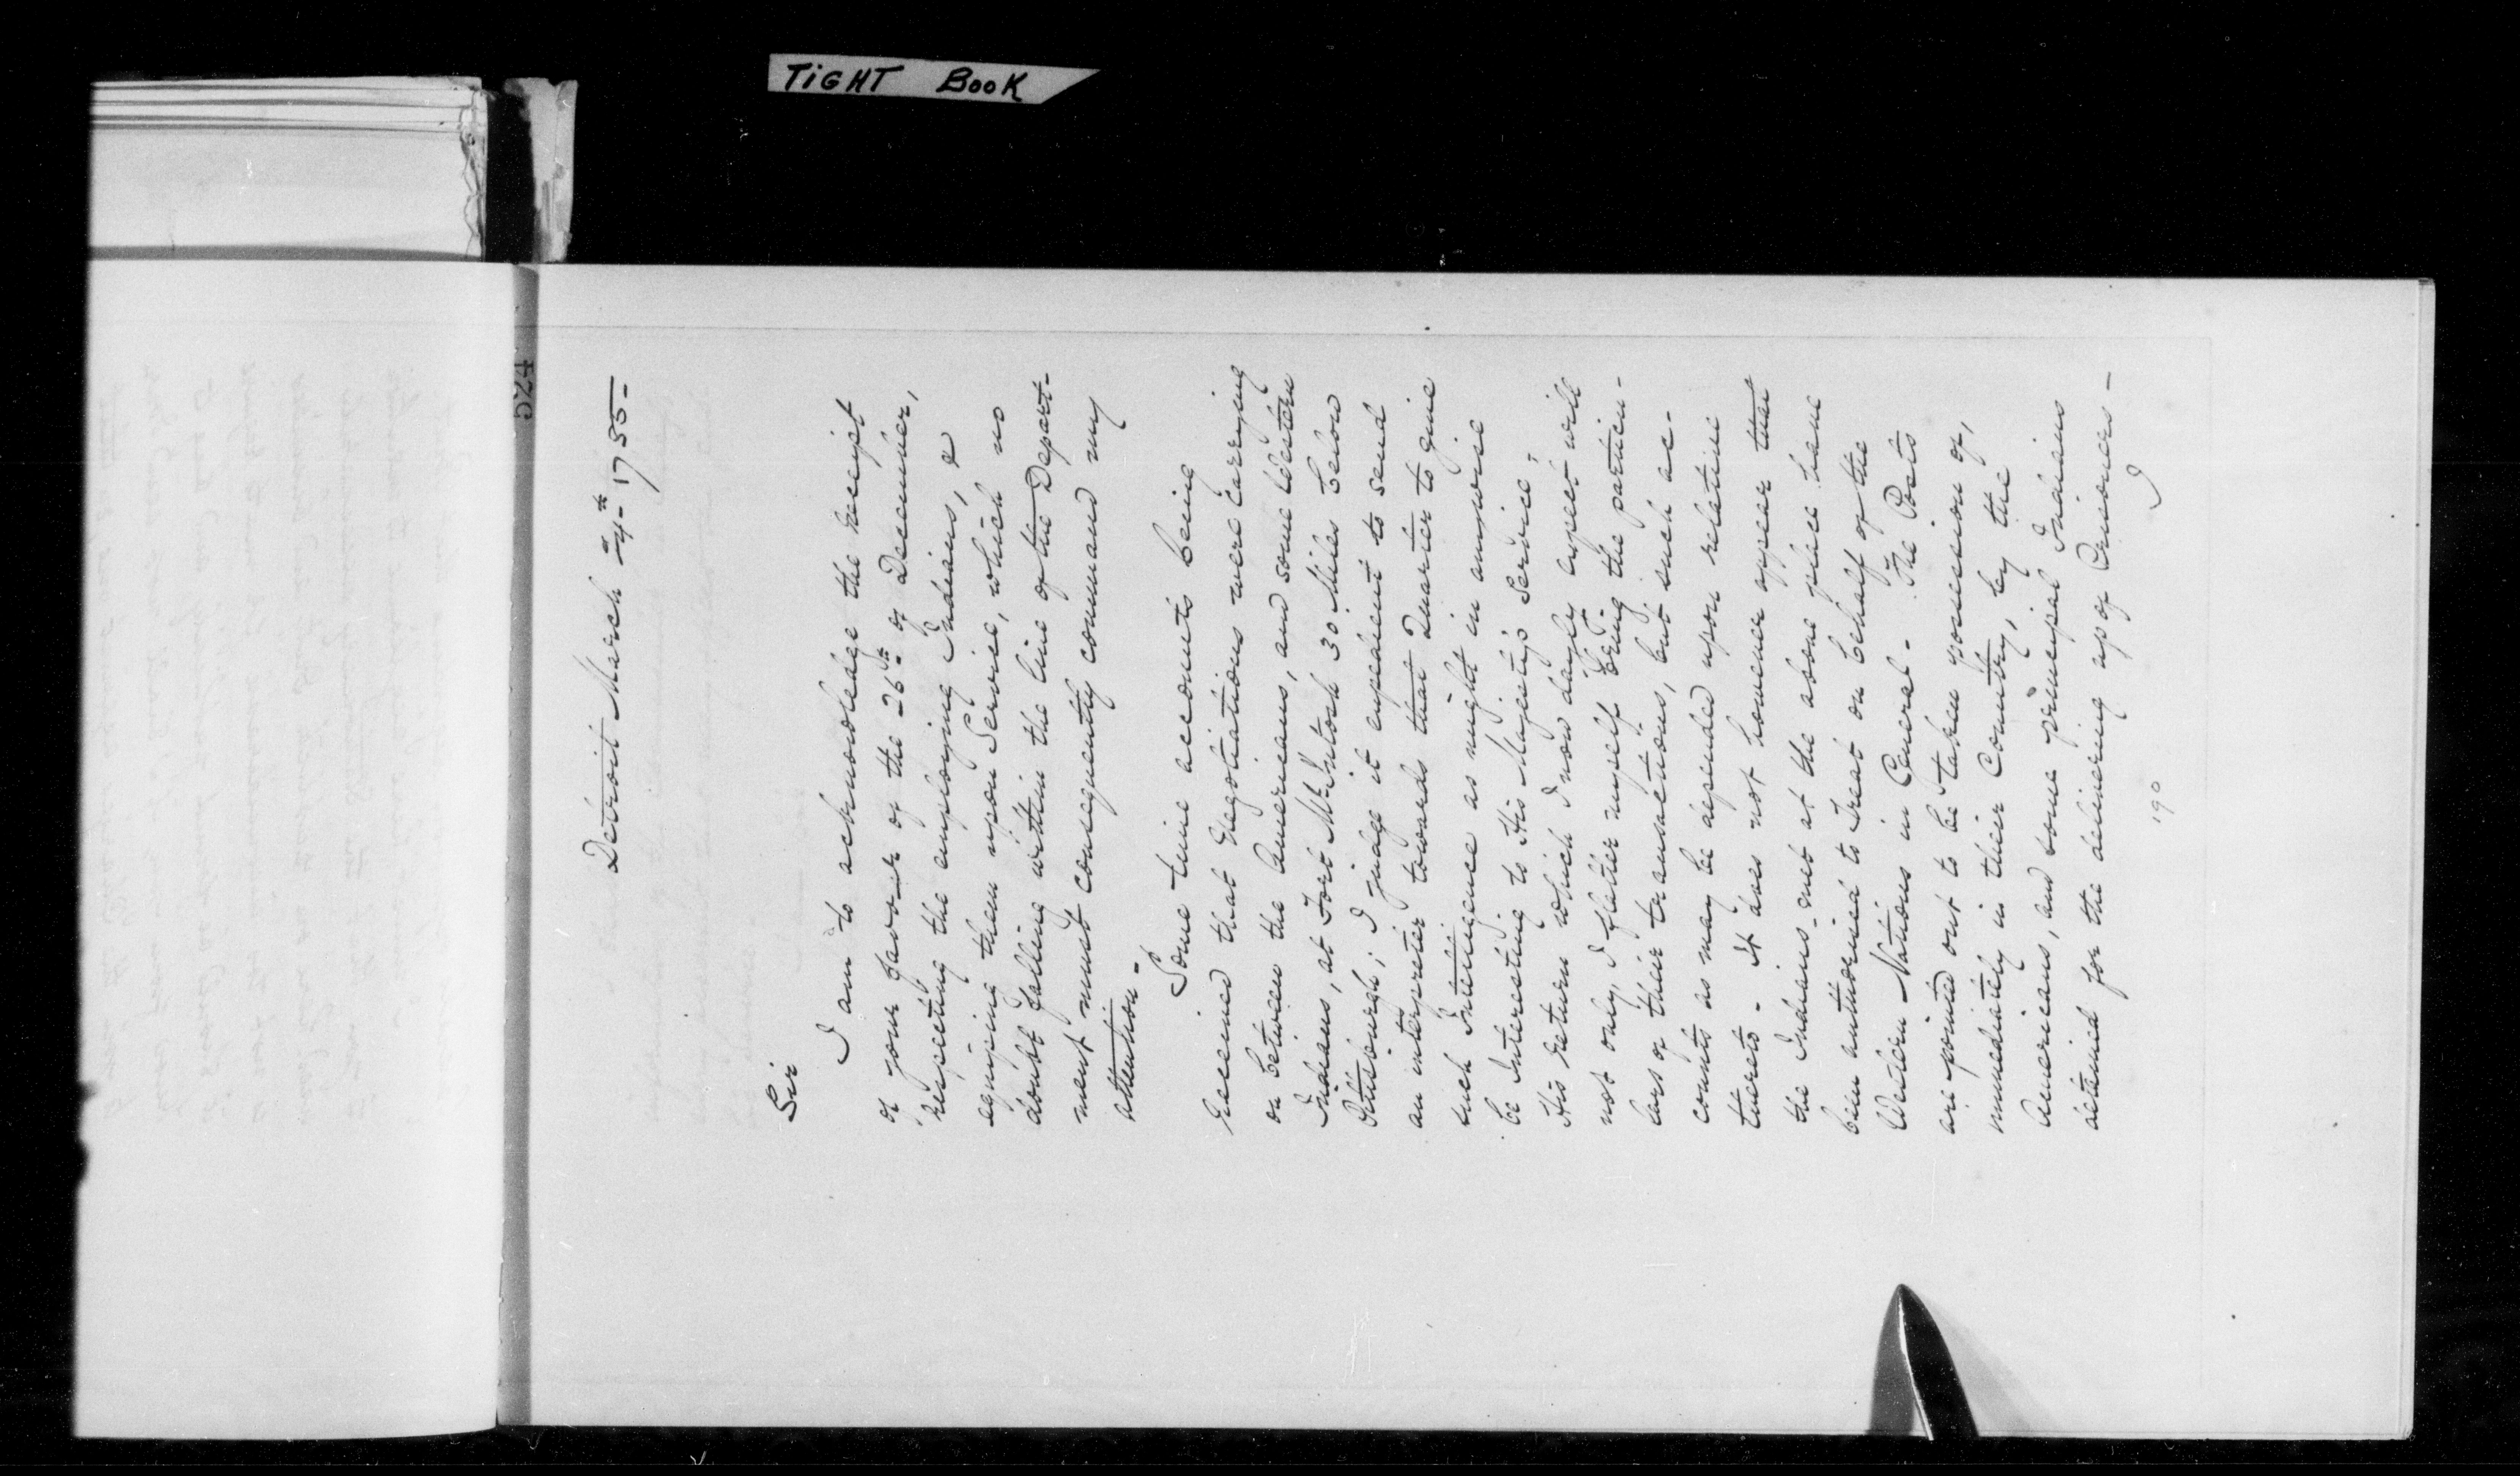 TIGHT BOOK
524
Detroit March 4th 1785-
Sir
I am to acknowledge the receipt
of your favour of the 26th of December,
respecting the employing Indians, &
equiping them upon Service, which no
doubt falling within the line of the Depart-
ment must consequently command my
attention-
Some time accounts being
received that Negotiations were carrying
on between the Americans, and some Western
Indians, at Fort McIntosh 30 Miles below
Pittsburgh; I judge it expedient to send
an interpreter towards that Quarter to give
such Intelligence as might in anywise
be Interesting to His Majesty's Service,
His return which I now dayly expect will
not only, I flatter myself bring the particu-
lars of their transactions, but such ac-
counts as may be depended upon relative
thereto- It does not however appear that
the Indians met at the above place have
been authorised to Treat on behalf of the
Western Nations in General- The Posts
are pointed out to be taken possession of,
immediately in their Country, by the
Americans, and some principal Indians
detained for the delivering up of Prisoners-
I
190